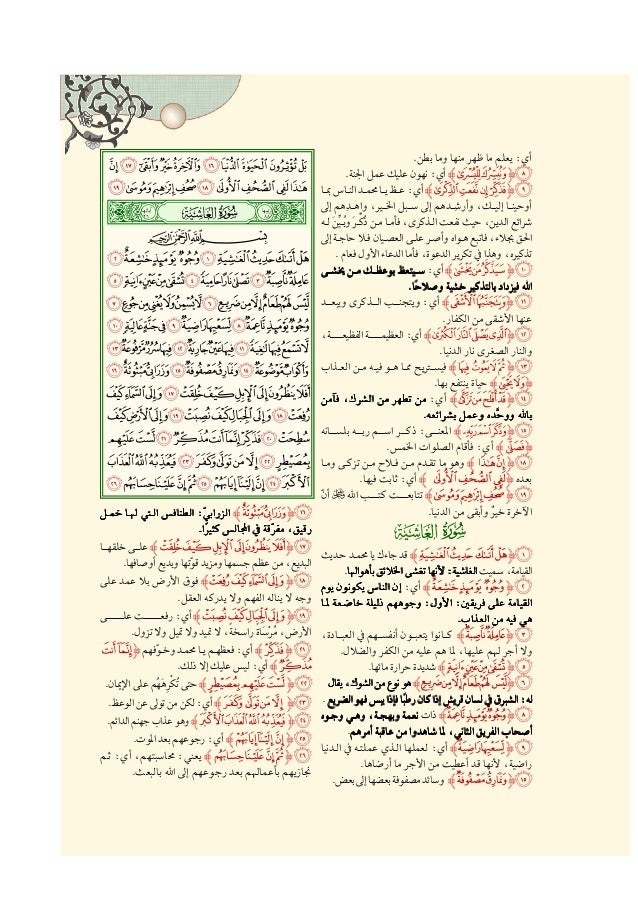 أي: يعلم ما ظهر منها وما بطن.
﴿٨﴾ ﴿وَنُيَسِّرُكَ لِلْيُسْرَىٰ﴾ أي: نهون عليك عمل الجنة.
﴿٩﴾ ﴿فَذَكِّرْ إِن نَّفَعَتِ الذِّكْرَىٰ﴾ أي: عظ يا محمد الناس بما
أوحينا إليك، وأرشدهم إلى سبل الخير، واهدهم إلى
شرائع الدين، حيث نفعت الذكرى، فأما من ذُكِّر وبُيِّن له
الحق بجلاء، فاتبع هواه وأصر على العصيان فلا حاجة إلى
تذكيره، وهذا في تكرير الدعوة، فأما الدعاء الأول فعام.
﴿١٠﴾ ﴿سَيَذَّكَّرُ مَن يَخْشَىٰ﴾ أي: سيتعظ بوعظك من يخشى
الله فيزداد بالتذكير خشية وصلاحًا.
﴿١١﴾ ﴿وَيَتَجَنَّبُهَا الْأَشْقَى﴾ أي: ويتجنب الذكرى ويبعد
عنها الأشقى من الكفار.
﴿١٢﴾ ﴿الَّذِي يَصْلَى النَّارَ الْكُبْرَىٰ﴾ أي: العظيمة الفظيعة،
والنار الصغرى نار الدنيا.
﴿١٣﴾ ﴿ثُمَّ لَا يَمُوتُ فِيهَا﴾ فيستريح مما هو فيه من العذاب
﴿وَلَا يَحْيَىٰ﴾ حياة ينتفع بها.
﴿١٤﴾ ﴿قَدْ أَفْلَحَ مَن تَزَكَّىٰ﴾ أي: من تطهر من الشرك، فآمن
بالله ووحَّده وعمل بشرائعه.
﴿١٥﴾ ﴿وَذَكَرَ اسْمَ رَبِّهِ﴾ المعنى: ذكر اسم ربه بلسانه
﴿فَصَلَّىٰ﴾ أي: فأقام الصلوات الخمس.
﴿١٨﴾ ﴿إِنَّ هَٰذَا﴾ وهو ما تقدم من فلاح من تزكى وما
بعده ﴿لَفِي الصُّحُفِ الْأُولَىٰ﴾ أي: ثابت فيها.
﴿١٩﴾ ﴿صُحُفِ إِبْرَاهِيمَ وَمُوسَىٰ﴾ تتابعت كتب الله ﷻ أنّ
الآخرة خيرٌ وأبقى من الدنيا.
سُورَةُ الْغَاشِيَةِ
﴿١﴾ ﴿هَلْ أَتَاكَ حَدِيثُ الْغَاشِيَةِ﴾ قد جاءك يا محمد حديث
القيامة، سميت الغاشية: لأنها تغشى الخلائق بأهوالها.
﴿٢﴾ ﴿وُجُوهٌ يَوْمَئِذٍ خَاشِعَةٌ﴾ أي: إن الناس يكونون يوم
القيامة على فريقين: الأول: وجوههم ذليلة خاضعة لما
هي فيه من العذاب.
﴿٣﴾ ﴿عَامِلَةٌ نَّاصِبَةٌ﴾ كانوا يتعبون أنفسهم في العبادة،
ولا أجر لهم عليها، لما هم عليه من الكفر والضلال.
﴿٥﴾ ﴿تُسْقَىٰ مِنْ عَيْنٍ آنِيَةٍ﴾ شديدة حرارة مائها.
﴿٦﴾ ﴿لَّيْسَ لَهُمْ طَعَامٌ إِلَّا مِن ضَرِيعٍ﴾ هو نوع من الشوك، يقال
له: الشبرق في لسان قريش إذا كان رطبًا فإذا يبس فهو الضريع.
﴿٨﴾ ﴿وُجُوهٌ يَوْمَئِذٍ نَّاعِمَةٌ﴾ ذات نعمة وبهجة، وهي وجوه
أصحاب الفريق الثاني، لما شاهدوا من عاقبة أمرهم.
﴿٩﴾ ﴿لِّسَعْيِهَا رَاضِيَةٌ﴾ أي: لعملها الذي عملته في الدنيا
راضية، لأنها قد أعطيت من الأجر ما أرضاها.
﴿١٥﴾ ﴿وَنَمَارِقُ مَصْفُوفَةٌ﴾ وسائد مصفوفة بعضها إلى بعض.
بَلْ تُؤْثِرُونَ الْحَيَاةَ الدُّنْيَا ﴿١٦﴾ وَالْآخِرَةُ خَيْرٌ وَأَبْقَىٰ ﴿١٧﴾ إِنَّ
هَٰذَا لَفِي الصُّحُفِ الْأُولَىٰ ﴿١٨﴾ صُحُفِ إِبْرَاهِيمَ وَمُوسَىٰ ﴿١٩﴾
سُورَةُ الْغَاشِيَةِ
بِسْمِ اللَّهِ الرَّحْمَٰنِ الرَّحِيمِ
هَلْ أَتَاكَ حَدِيثُ الْغَاشِيَةِ ﴿١﴾ وُجُوهٌ يَوْمَئِذٍ خَاشِعَةٌ ﴿٢﴾
عَامِلَةٌ نَّاصِبَةٌ ﴿٣﴾ تَصْلَىٰ نَارًا حَامِيَةً ﴿٤﴾ تُسْقَىٰ مِنْ عَيْنٍ آنِيَةٍ ﴿٥﴾
لَّيْسَ لَهُمْ طَعَامٌ إِلَّا مِن ضَرِيعٍ ﴿٦﴾ لَّا يُسْمِنُ وَلَا يُغْنِي مِن جُوعٍ ﴿٧﴾
وُجُوهٌ يَوْمَئِذٍ نَّاعِمَةٌ ﴿٨﴾ لِّسَعْيِهَا رَاضِيَةٌ ﴿٩﴾ فِي جَنَّةٍ عَالِيَةٍ ﴿١٠﴾
لَّا تَسْمَعُ فِيهَا لَاغِيَةً ﴿١١﴾ فِيهَا عَيْنٌ جَارِيَةٌ ﴿١٢﴾ فِيهَا سُرُرٌ مَّرْفُوعَةٌ ﴿١٣﴾
وَأَكْوَابٌ مَّوْضُوعَةٌ ﴿١٤﴾ وَنَمَارِقُ مَصْفُوفَةٌ ﴿١٥﴾ وَزَرَابِيُّ مَبْثُوثَةٌ ﴿١٦﴾
أَفَلَا يَنظُرُونَ إِلَى الْإِبِلِ كَيْفَ خُلِقَتْ ﴿١٧﴾ وَإِلَى السَّمَاءِ كَيْفَ
رُفِعَتْ ﴿١٨﴾ وَإِلَى الْجِبَالِ كَيْفَ نُصِبَتْ ﴿١٩﴾ وَإِلَى الْأَرْضِ كَيْفَ
سُطِحَتْ ﴿٢٠﴾ فَذَكِّرْ إِنَّمَا أَنتَ مُذَكِّرٌ ﴿٢١﴾ لَّسْتَ عَلَيْهِم
بِمُصَيْطِرٍ ﴿٢٢﴾ إِلَّا مَن تَوَلَّىٰ وَكَفَرَ ﴿٢٣﴾ فَيُعَذِّبُهُ اللَّهُ الْعَذَابَ
الْأَكْبَرَ ﴿٢٤﴾ إِنَّ إِلَيْنَا إِيَابَهُمْ ﴿٢٥﴾ ثُمَّ إِنَّ عَلَيْنَا حِسَابَهُم ﴿٢٦﴾
﴿١٦﴾ ﴿وَزَرَابِيُّ مَبْثُوثَةٌ﴾ الزرابيّ: الطنافس التي لها خمل
رقيق، مفرّقة في المجالس كثيرًا.
﴿١٧﴾ ﴿أَفَلَا يَنظُرُونَ إِلَى الْإِبِلِ كَيْفَ خُلِقَتْ﴾ على خلقها
البديع، من عظم جسمها ومزيد قوتها وبديع أوصافها.
﴿١٨﴾ ﴿وَإِلَى السَّمَاءِ كَيْفَ رُفِعَتْ﴾ فوق الأرض بلا عمد على
وجه لا يناله الفهم ولا يدركه العقل.
﴿١٩﴾ ﴿وَإِلَى الْجِبَالِ كَيْفَ نُصِبَتْ﴾ أي: رفعت على
الأرض، مُرْسَاة راسخة، لا تميد ولا تميل ولا تزول.
﴿٢١﴾ ﴿فَذَكِّرْ﴾ أي: فعظهم يا محمد وخوفهم ﴿إِنَّمَا أَنتَ
مُذَكِّرٌ﴾ أي: ليس عليك إلا ذلك.
﴿٢٢﴾ ﴿لَّسْتَ عَلَيْهِم بِمُصَيْطِرٍ﴾ حتى تُكرِهَهُم على الإيمان.
﴿٢٣﴾ ﴿إِلَّا مَن تَوَلَّىٰ وَكَفَرَ﴾ أي: لكن من تولى عن الوعظ.
﴿٢٤﴾ ﴿فَيُعَذِّبُهُ اللَّهُ الْعَذَابَ الْأَكْبَرَ﴾ وهو عذاب جهنم الدائم.
﴿٢٥﴾ ﴿إِنَّ إِلَيْنَا إِيَابَهُمْ﴾ أي: رجوعهم بعد الموت.
﴿٢٦﴾ ﴿ثُمَّ إِنَّ عَلَيْنَا حِسَابَهُم﴾ يعني: محاسبتهم، أي: ثم
نجازيهم بأعمالهم بعد رجوعهم إلى الله بالبعث.